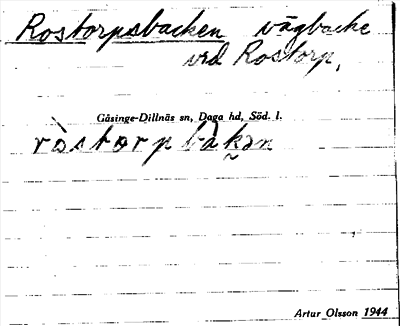 Rostorpsbacken vägbacke
vid Rostorp,
Gåsinge-Dillnäs sn, Daga hd, Söd. l.
ròstorpbàkən
Artur Olsson 1944